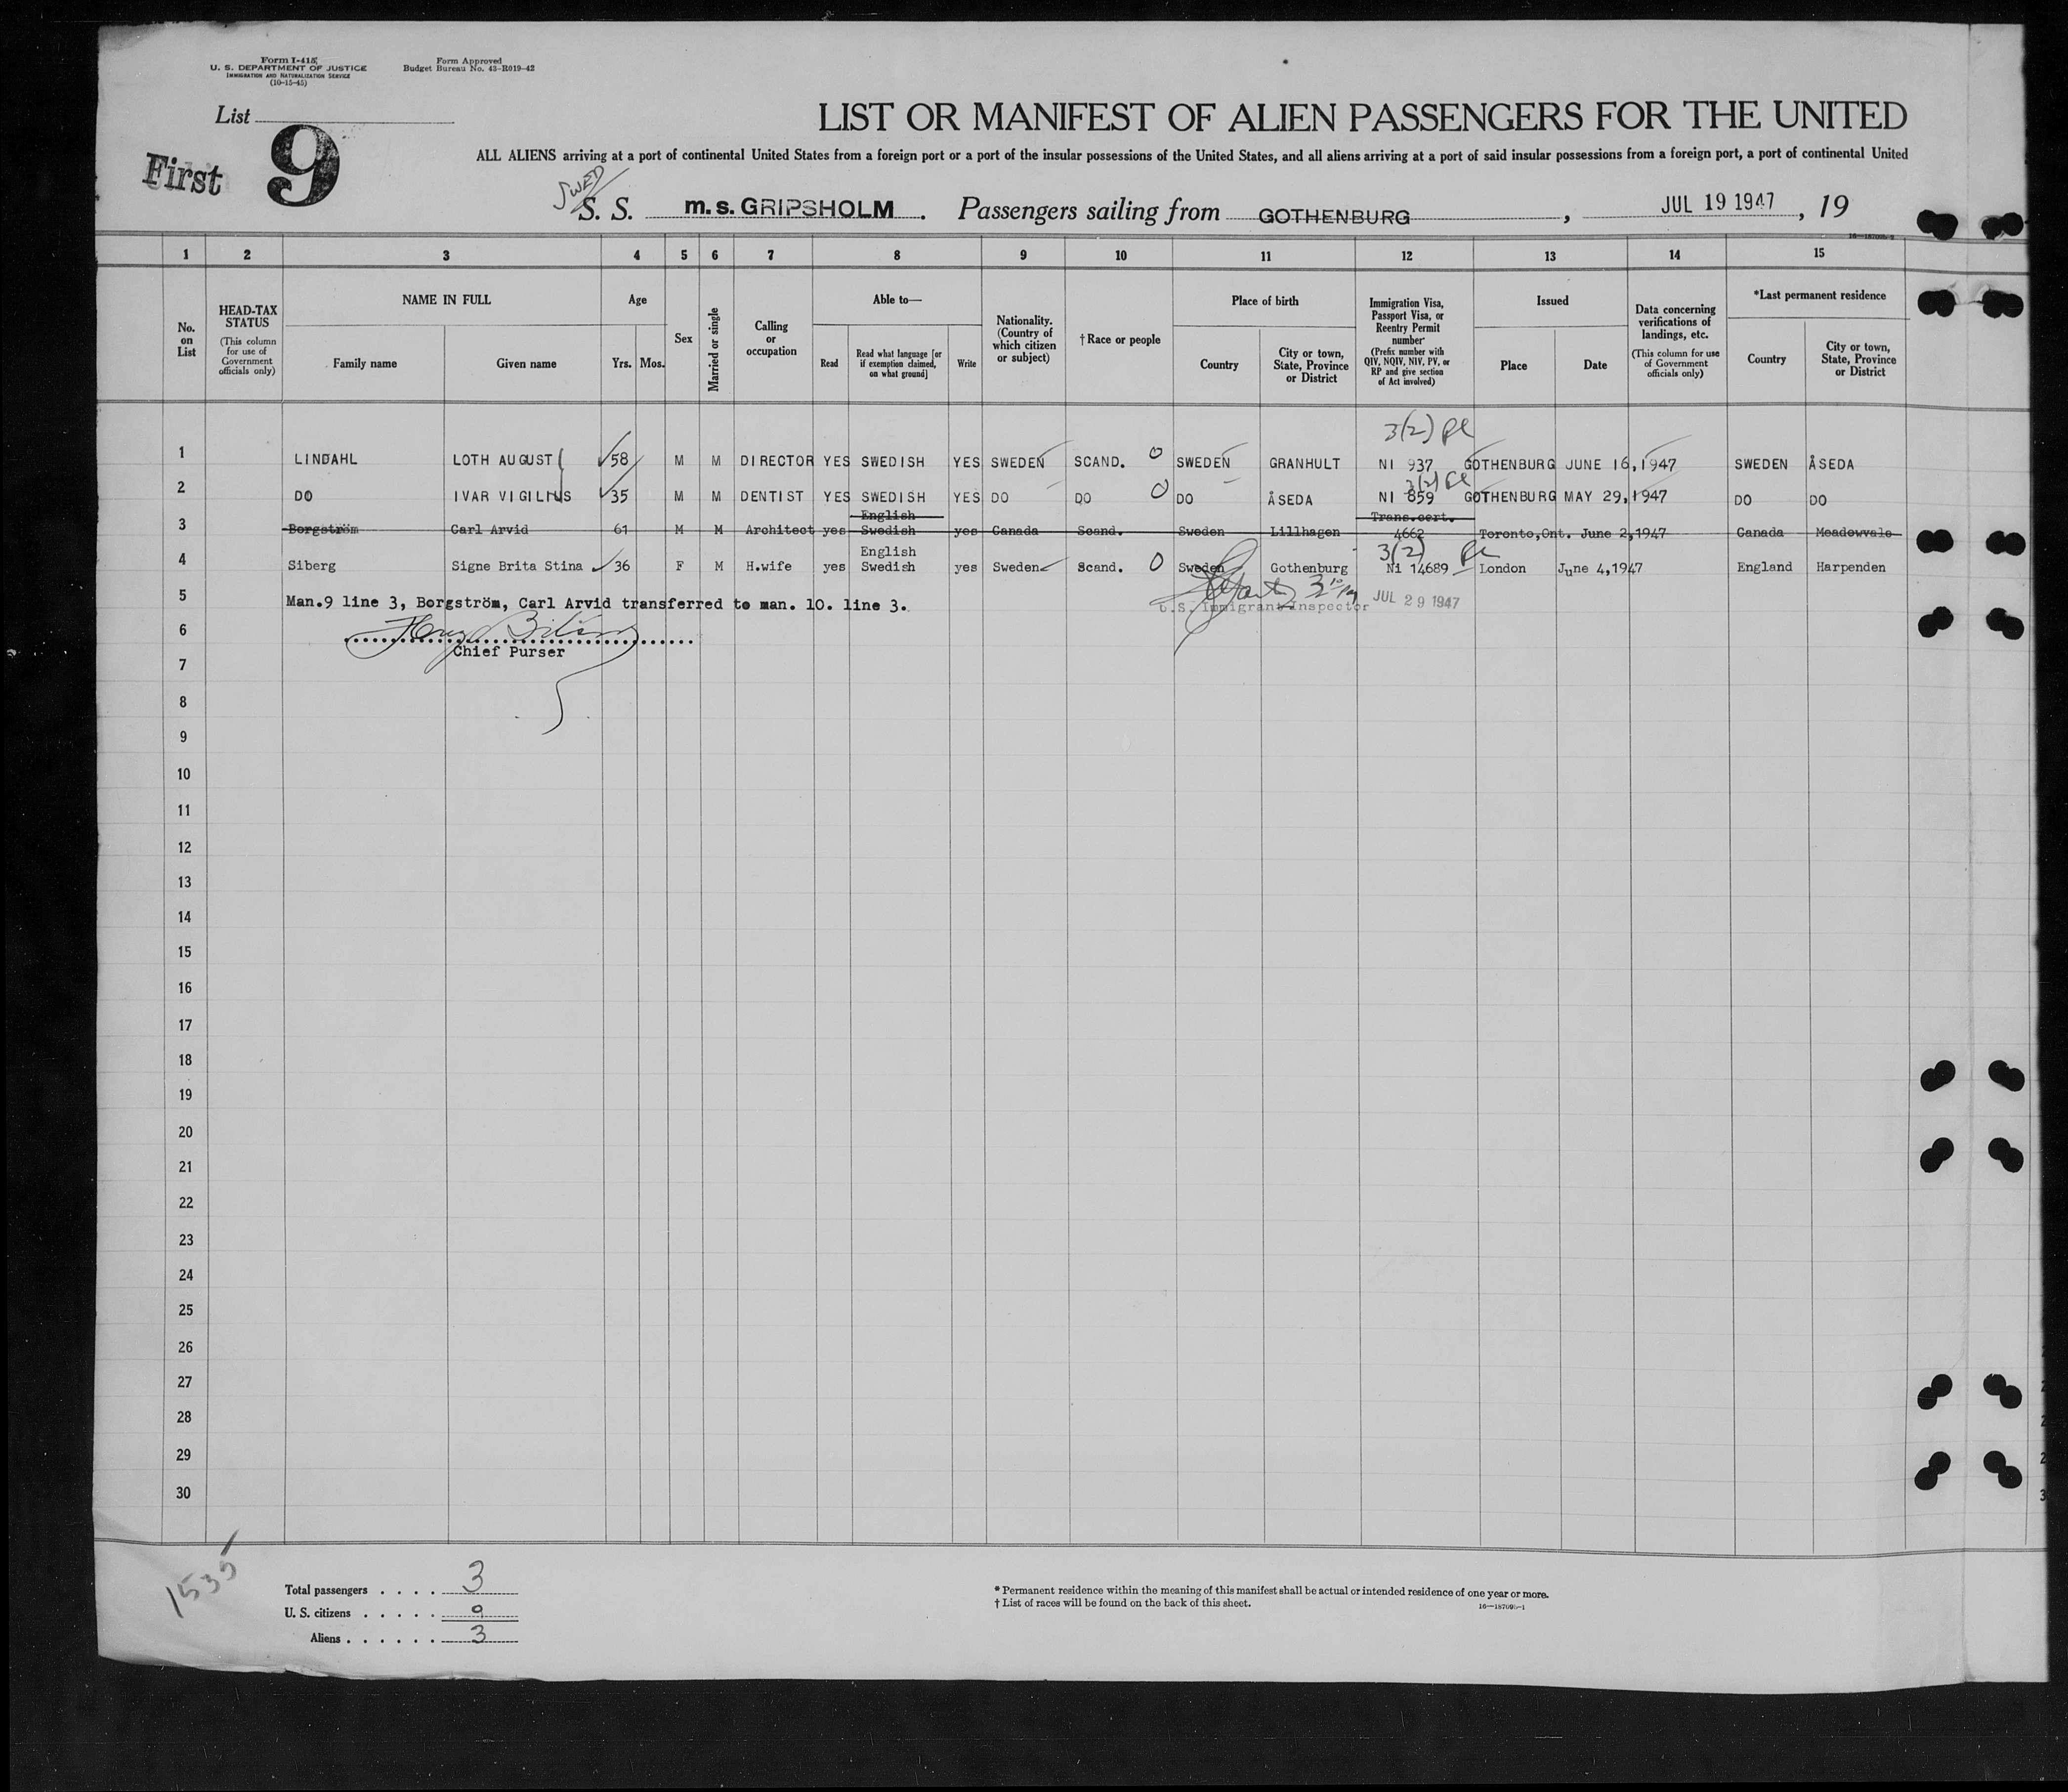 Form I-415
U. S. DEPARTMENT OF JUSTICE
IMMIGRATION AND NATURALIZATION SERVICE
(10-15-45)
Form Approved
Budget Bureau No. 43-R019-42
List
First 9
LIST OR MANIFEST OF ALIEN PASSENGERS FOR THE UNITED
ALL ALIENS arriving at a port of continental United States from a foreign port or a port of the insular possessions of the United States, and all aliens arriving at a port of said insular possessions from a foreign port, a port of continental United
SWED
S. S. m.s. GRIPSHOLM. Passengers sailing from GOTHENBURG, JUL 19 1947, 19
1 2 3 4 5 6 7 8 9 10 11 12 13 14 15
No. on List
HEAD-TAX STATUS
(This column for use of Government officials only)
NAME IN FULL
Family name
Given name
Age
Yrs. Mos.
Sex
Married or single
Calling or occupation
Able to—
Read
Read what language [or if exemption claimed, on what ground]
Write
Nationality. (Country of which citizen or subject)
† Race or people
Place of birth
Country
City or town, State, Province or District
Immigration Visa, Passport Visa, or Reentry Permit number
(Prefix number with QIV, NQIV, NIV, PV, or RP and give section of Act involved)
Issued
Place
Date
Data concerning verifications of landings, etc.
(This column for use of Government officials only)
*Last permanent residence
Country
City or town, State, Province or District
3(2)
1 LINDAHL LOTH AUGUST 58 M M DIRECTOR YES SWEDISH YES SWEDEN SCAND. 0 SWEDEN GRANHULT NI 937 GOTHENBURG JUNE 16, 1947 SWEDEN ÅSEDA
3(2)
2 DO IVAR VIGILIUS 35 M M DENTIST YES SWEDISH YES DO DO 0 DO ÅSEDA NI 859 GOTHENBURG MAY 29, 1947 DO DO
English Trans.cert.
3 Borgström Carl Arvid 61 M M Architect yes Swedish yes Canada Scand. Sweden Lillhagen 4662 Toronto,Ont. June 2,1947 Canada Meadowvale
English 3(2)
4 Siberg Signe Brita Stina 36 F M H.wife yes Swedish yes Sweden Scand. 0 Sweden Gothenburg Ni 14689 London June 4,1947 England Harpenden
5 Man.9 line 3, Borgström, Carl Arvid transferred to man. 10. line 3.
U.S. Immigrant Inspector JUL 29 1947
6
Chief Purser
7
8
9
10
11
12
13
14
15
16
17
18
19
20
21
22
23
24
25
26
27
28
29
30
1535
Total passengers . . . . 3
U. S. citizens . . . . . 0
Aliens . . . . . . 3
* Permanent residence within the meaning of this manifest shall be actual or intended residence of one year or more.
† List of races will be found on the back of this sheet.